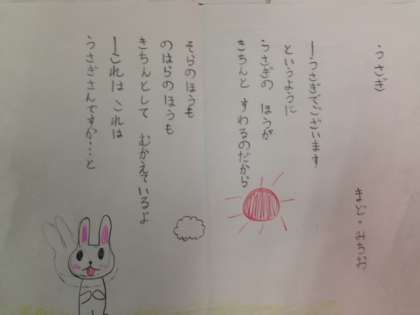 うさぎ
まど・みちお
ーうさぎでございます
というように
うさぎの ほうが
きちんと すわるのだから
そらのほうも
のはらのほうも
きちんとして むかえているよ
ーこれは これは
うさぎさんですか…と